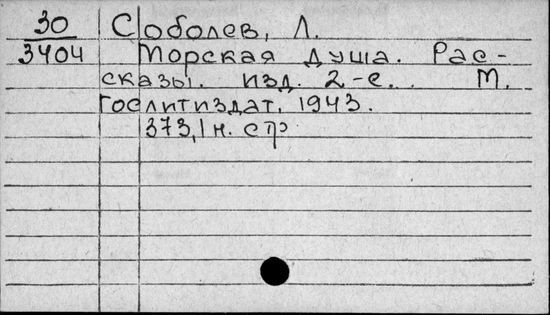 30 Соболев, Л.
3404 Морская душа. Рас-
сказы. изд. 2-е. М.
Гослитиздат, 1943.
373,1 н. стр